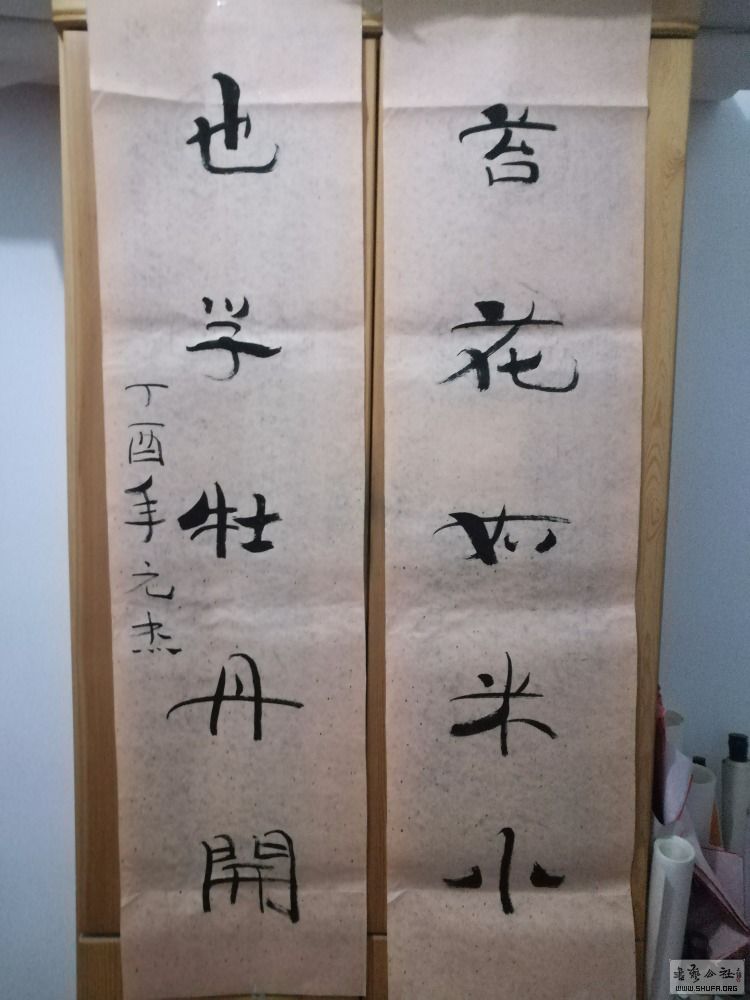 苔花如米小
也学牡丹開
丁酉年元杰
书艺公社
WWW.SHUFA.ORG